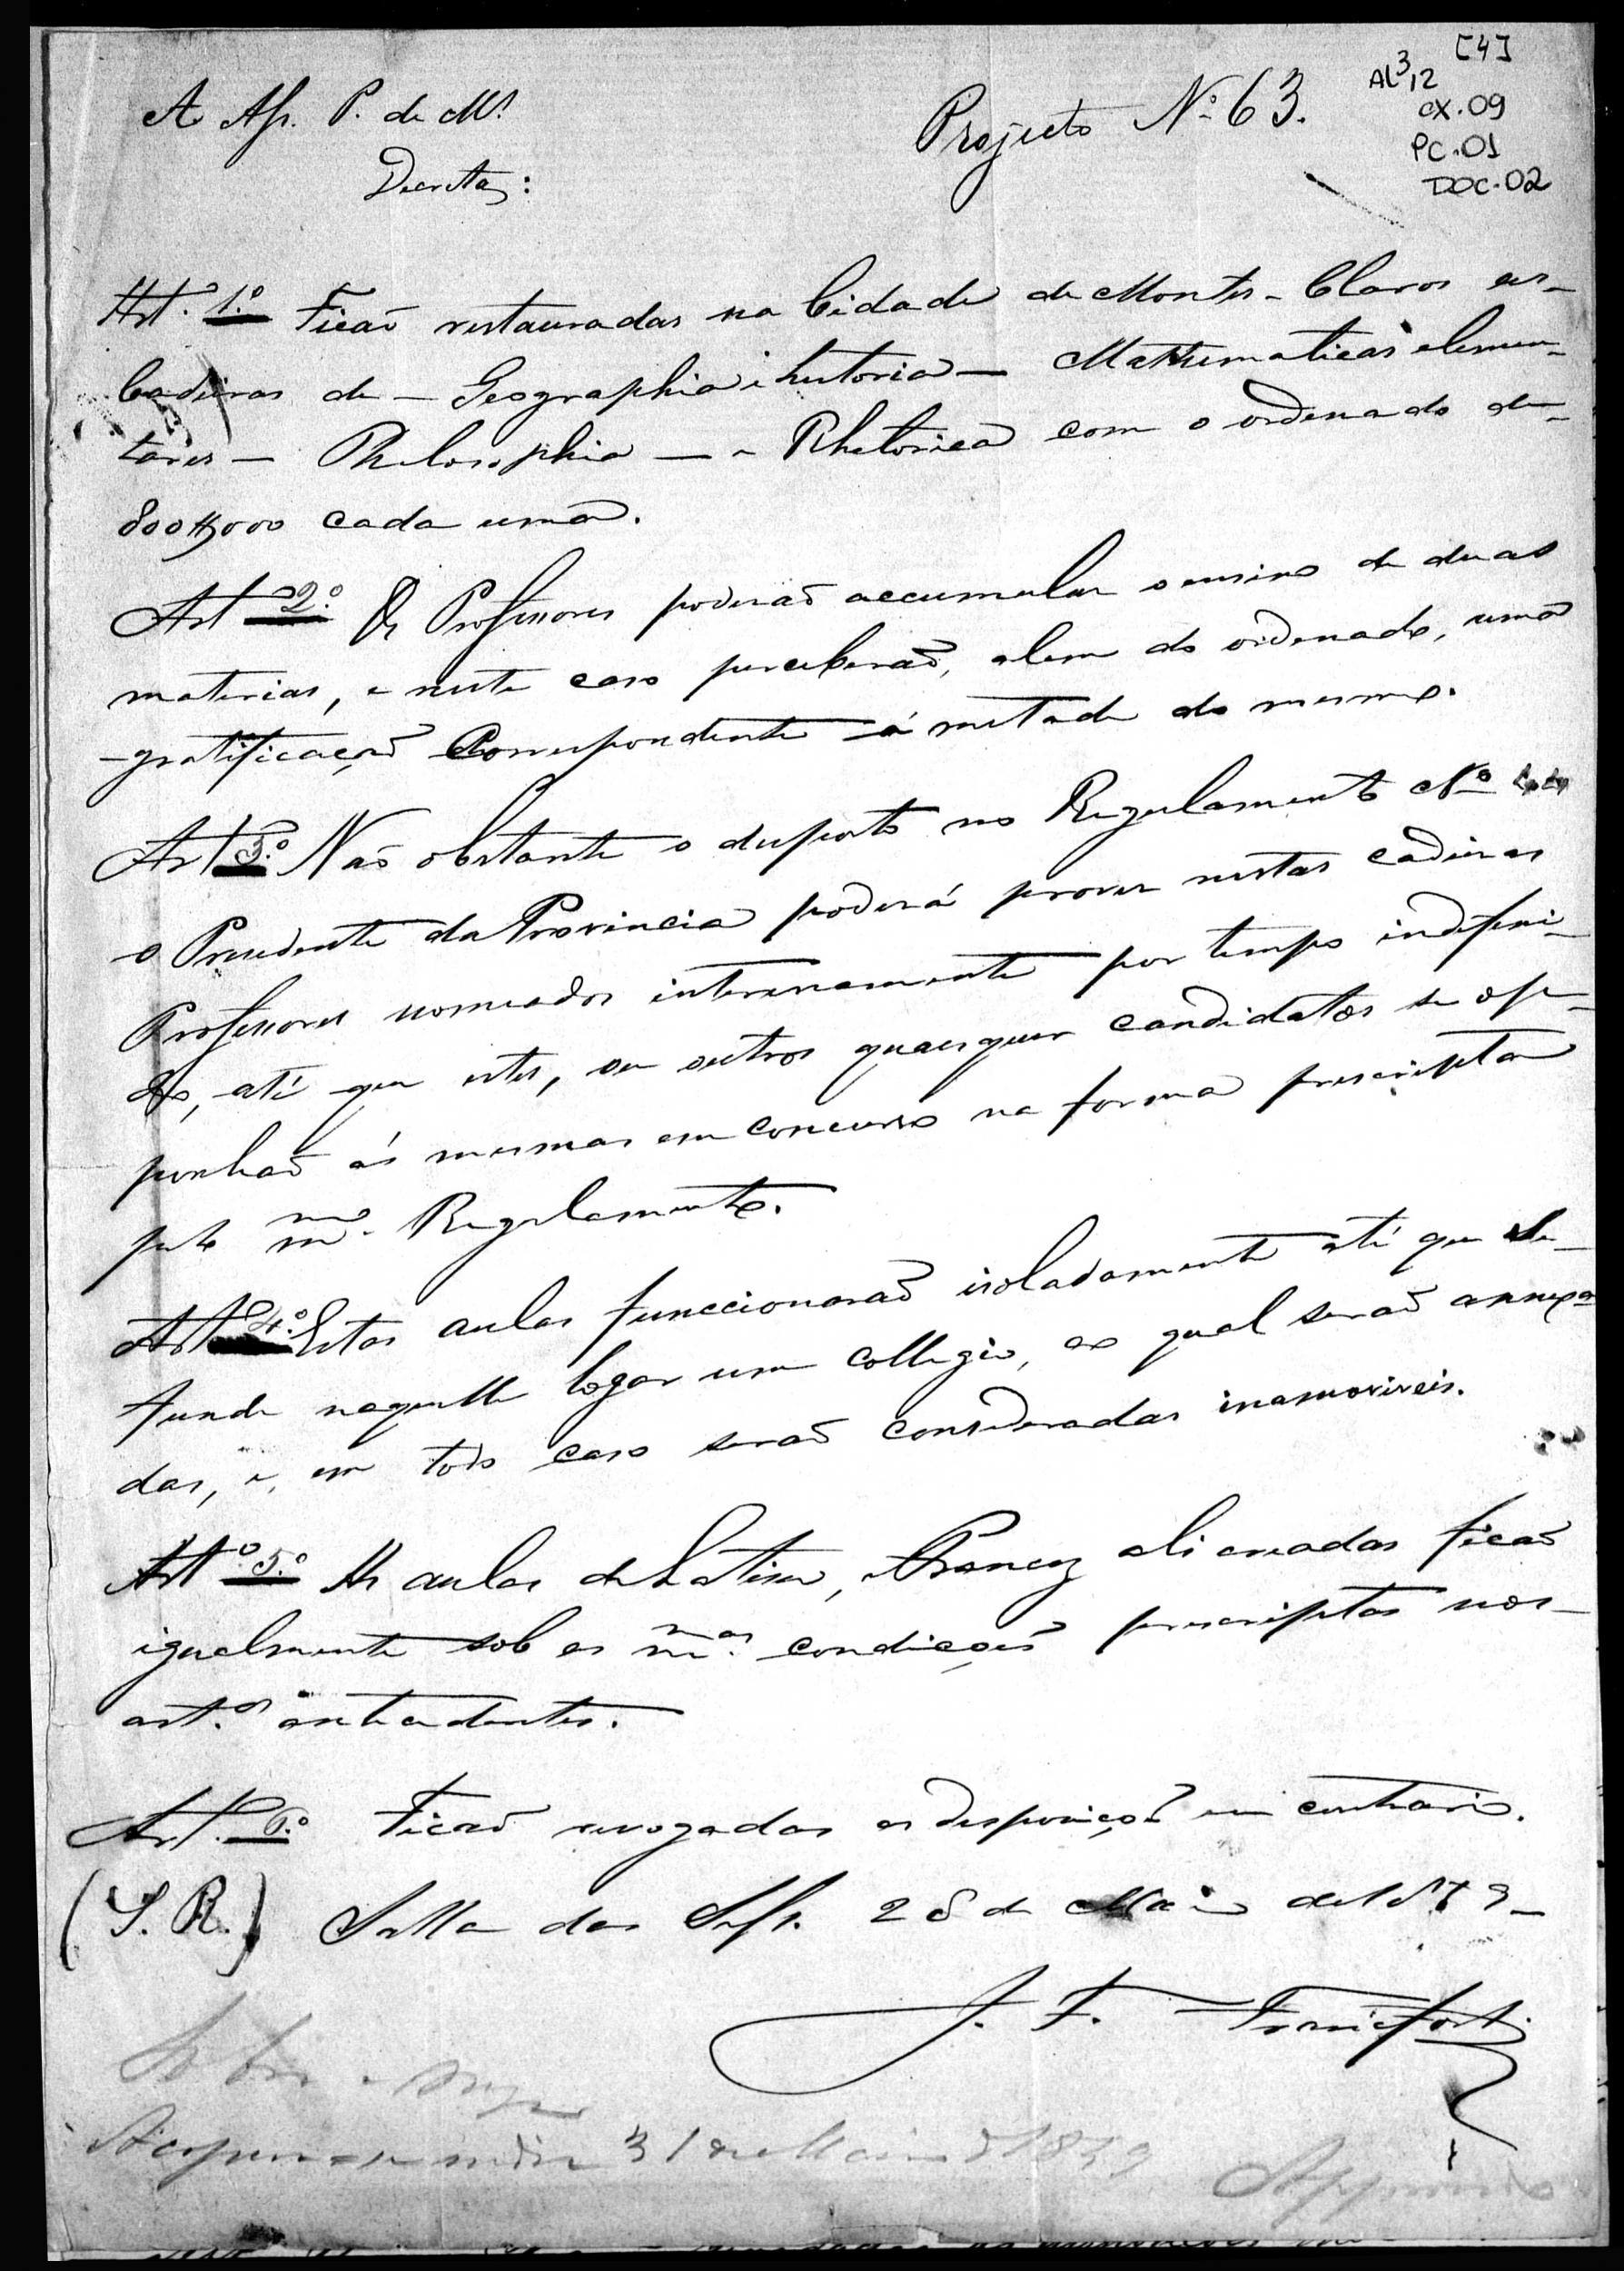 [4]
AL 3,12
CX.09
PC.01
DOC.02
Projecto Nº 63.
A Ass. P. de M.
Decreta:
Art. 1º Ficaõ restauradas na Cidade de Montes-Claros as
Cadeiras de - Geographia e historia - Mathematicas elemen-
tares - Philosophia - e Rhetorica com o ordenado de
800$000 cada uma.
Art 2º Os Professores poderaõ accumular o ensino de duas
materias, e neste caso perceberaõ, alem do ordenado, uma
gratificaçaõ correspondente á metade do mesmo.
Art 3º Naõ obstante o disposto no Regulamento Nº
o Presidente da Provincia poderá prover nestas cadeiras
Professores nomeados interinamente por tempo indefini-
do, até que estes, ou outros quaesquer candidatos se op-
ponhaõ ás mesmas em concurso na forma prescripta
pelo mmo. Regulamento.
Art 4º Estas aulas funccionaraõ isoladamente até que se
funde naquelle logar um collegio, ao qual seraõ annexa
das, e, em todo caso seraõ consideradas inamoviveis.
Artº 5º As aulas de Latim, e Francez ali creadas ficaõ
igualmente sob as mmas. condicções prescriptas nos
art.os antecedentes.
Art. 6º Ficaõ revogadas as disposições em contrario.
(S. R.) Salla das Sess. 28 de Maio de 1879
J. F.
31 de Maio